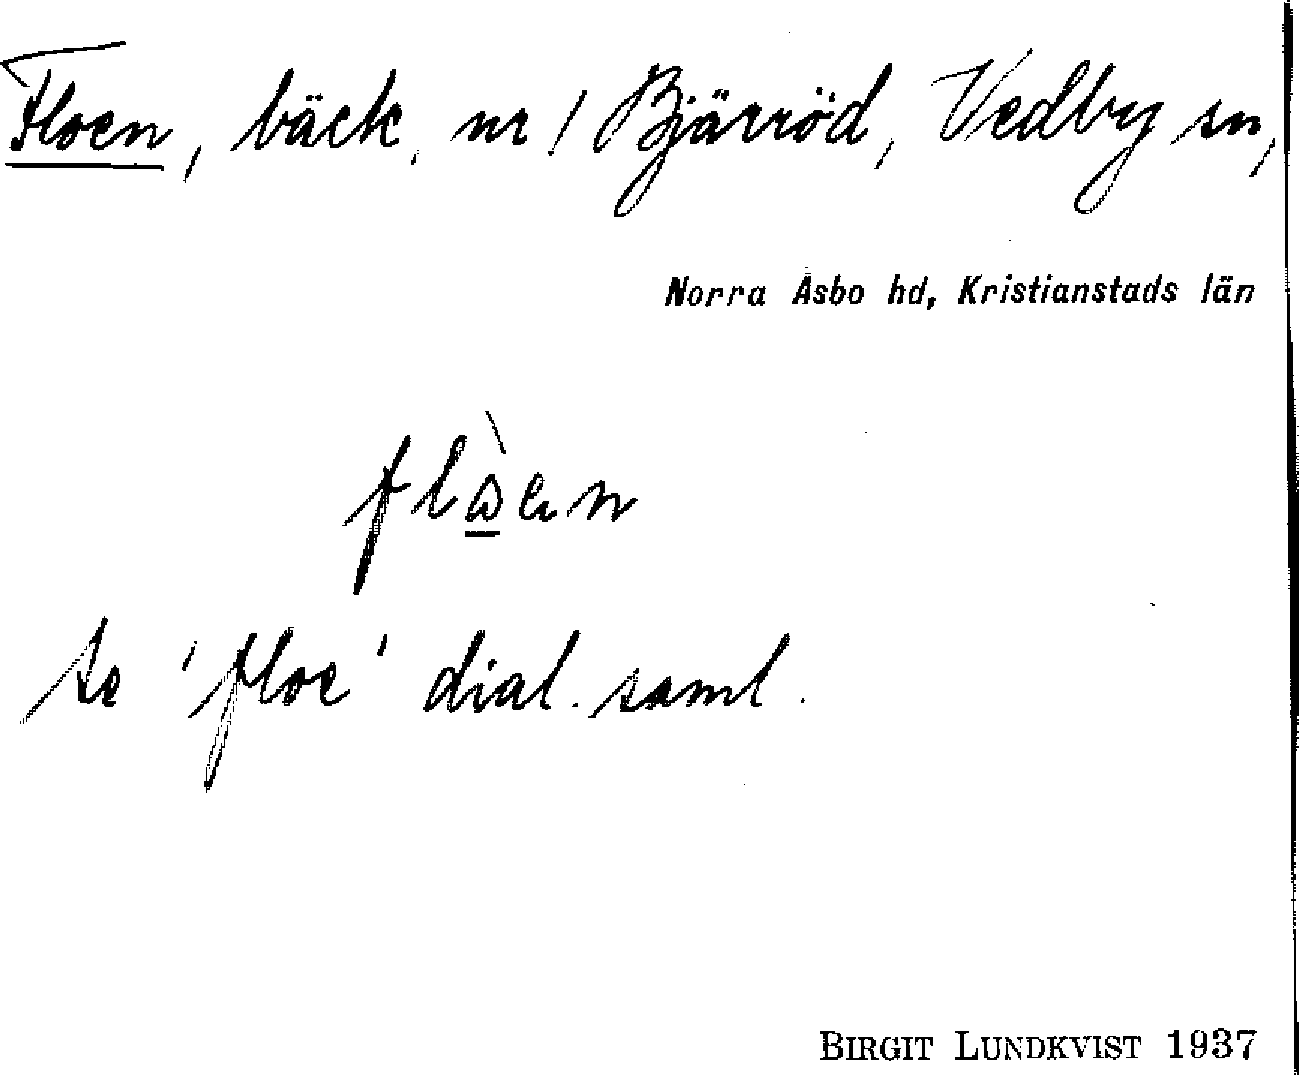 Floen, bäck, nr 1 Bjärröd, Vedby sn,
Norra Åsbo hd, Kristianstads län
se 'floe' dial. saml.
BIRGIT LUNDKVIST 1937